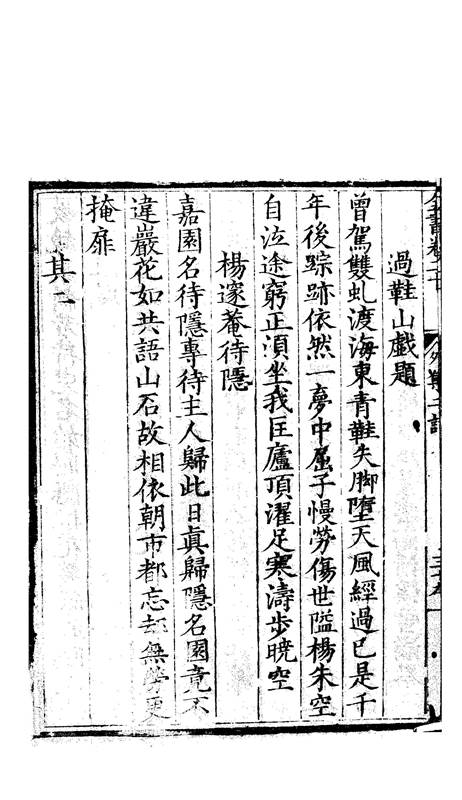 過鞋山戲題
曾駕雙虬渡海東青鞋失脚墮天風經過已是千
年後踪跡依然一夢中屈子慢勞傷世隘楊朱空
自泣途窮正須坐我匡廬頂濯足寒濤步曉空
楊邃菴待隱
嘉園名待隱專待主人歸此日真歸隱名園竟不
違巖花如共語山石故相依朝市都忘却無勞更
掩扉
其二